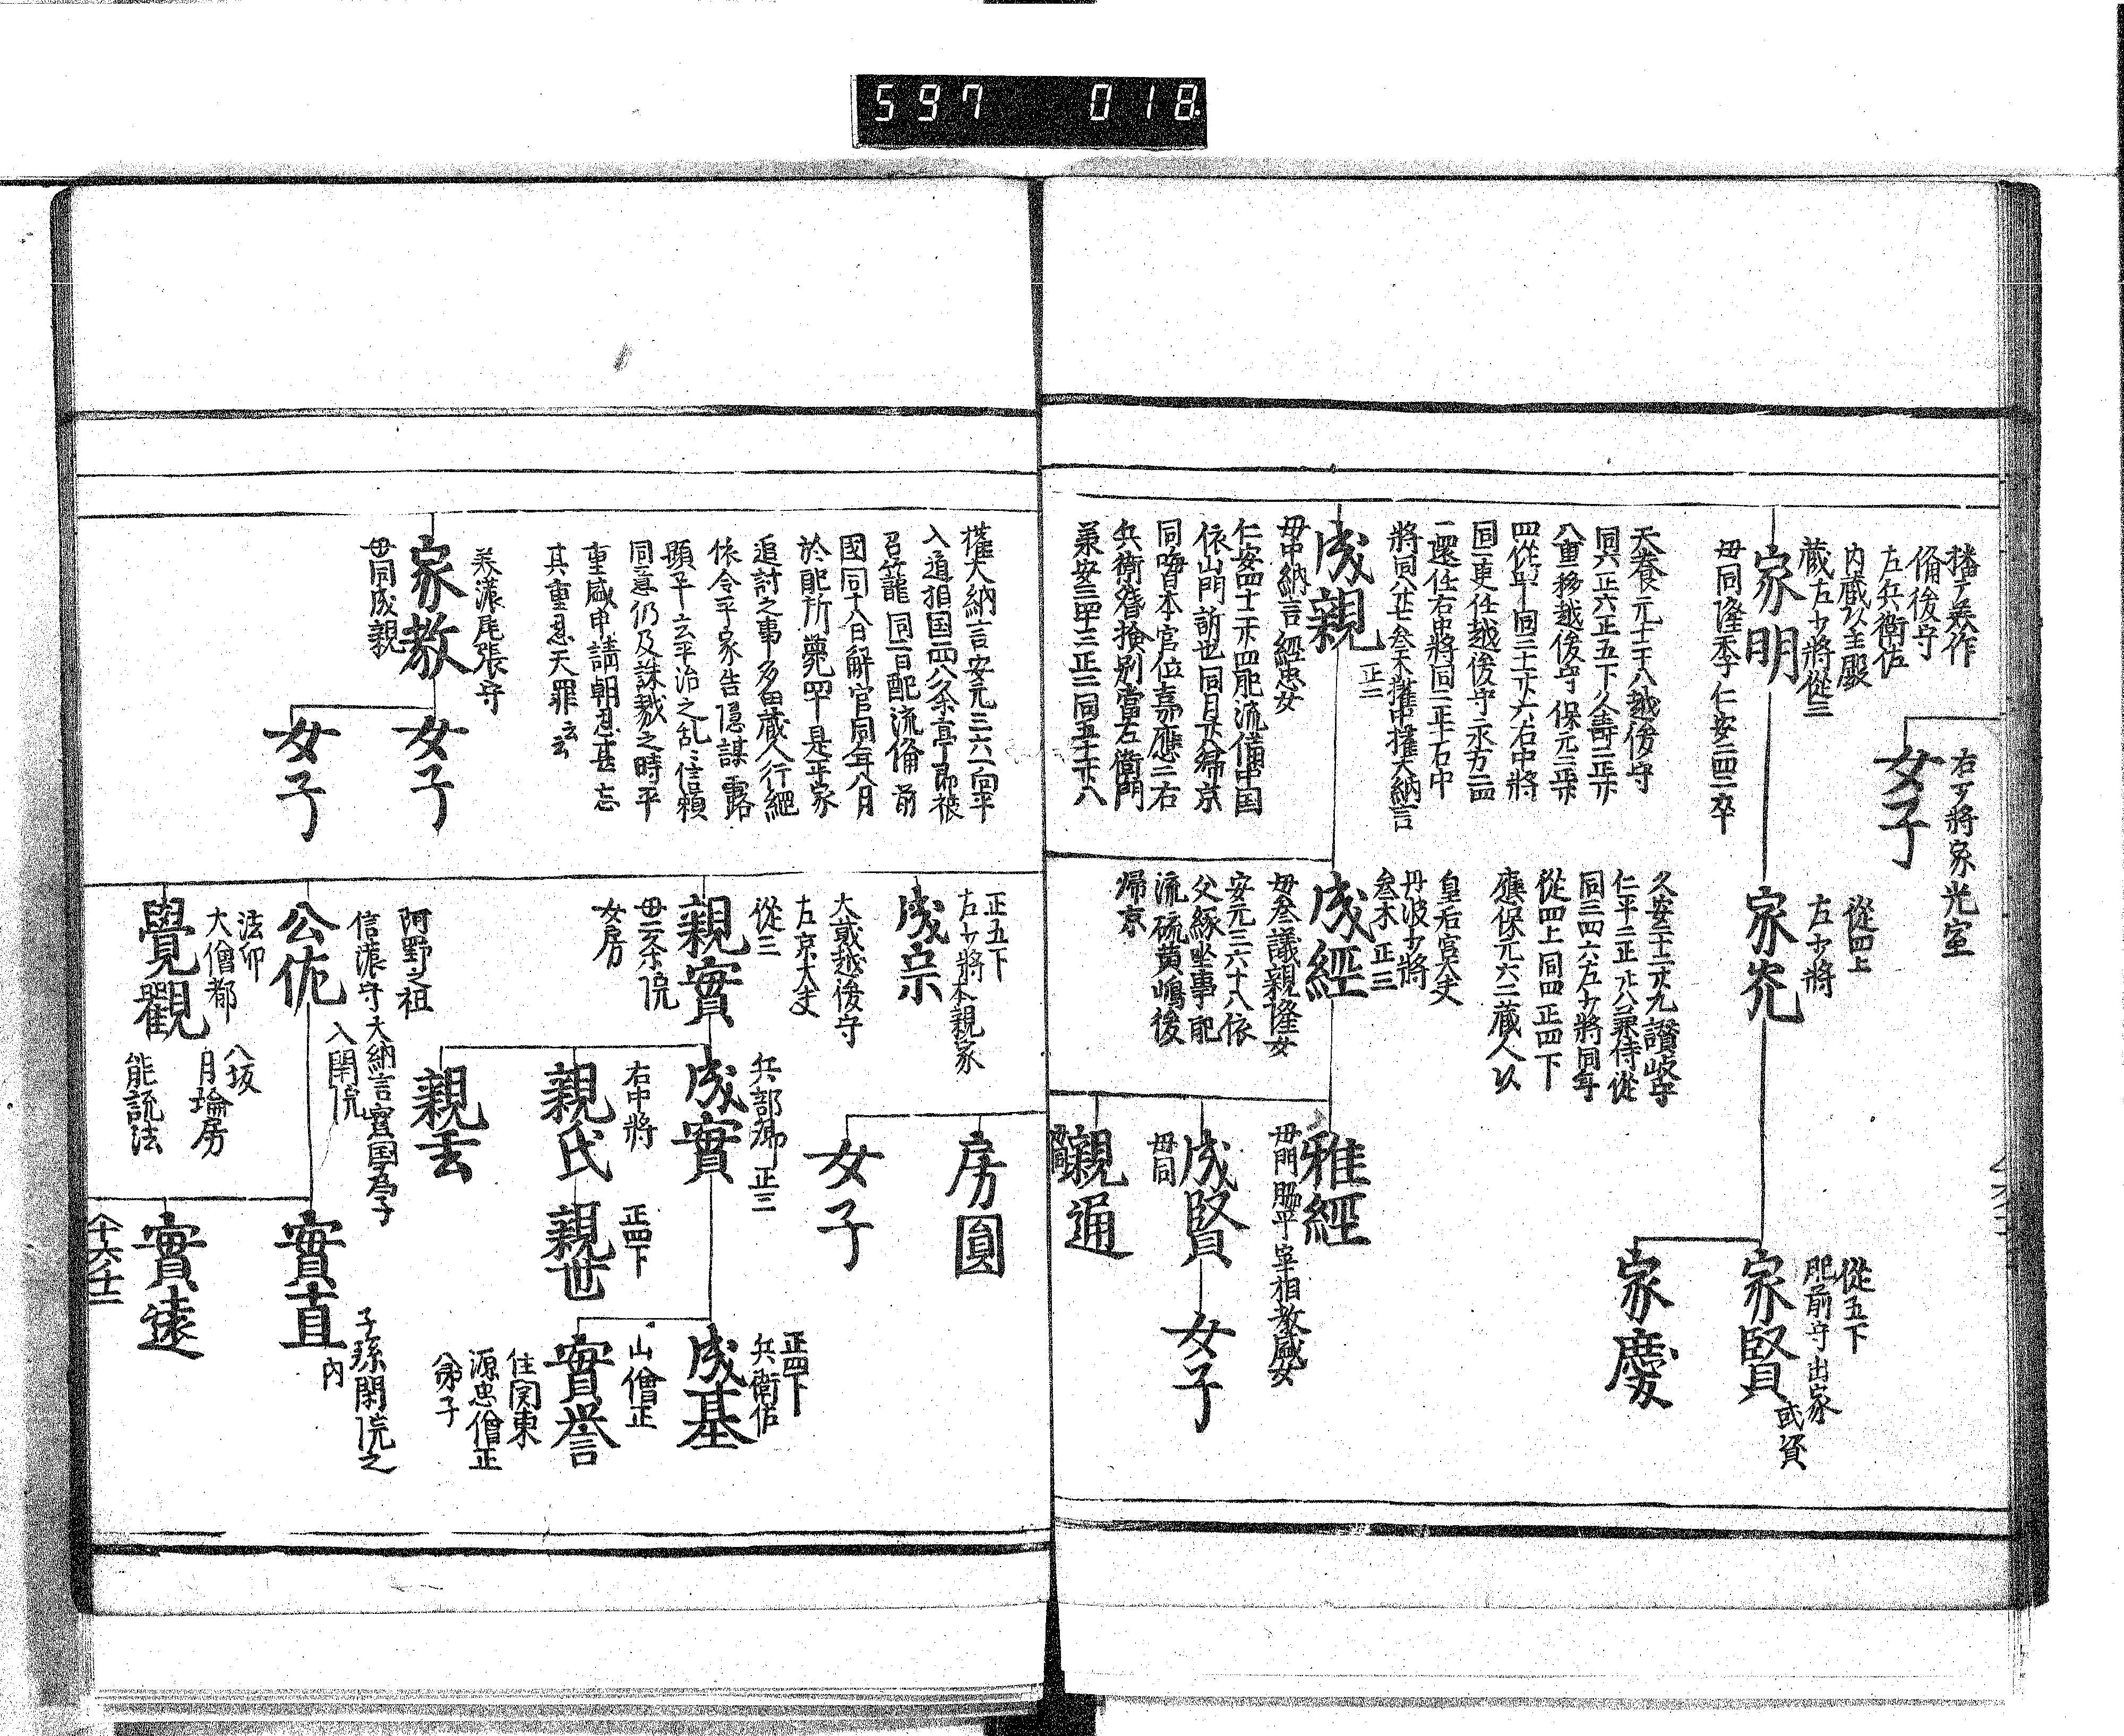 597 018
右少將家光室
女子
播广美作
備後守
左兵衛佐
内蔵以主殿
蔵左少將從三
家明
母同隆季仁安二四二卒
從四上
左少將
家光
久安三十二廿九讚岐守
仁平三正廿八兼侍從
同三四六左少將同年
從四上同四正四下
應保元六二蔵人以
從五下
肥前守出家
家賢
或資
家慶
天養元十二廿八越後守
同六正五下久壽二正廿
八重移越後守保元三
同二更任越後守永万二四
一還任右中將同二正十右中
將同八廿七叅木權中權大納言
成親
正二
母中納言經忠女
仁安四十二廿四配流備中国
依山門訴也同月廿八歸京
同晦日本官位嘉應二右
兵衛督檢別當左衛門
皇后宮大夫
丹波少將
叅木正三
成經
母叅議親隆女
安元三六十八依
父縁坐事配
流硫黄嶋後
歸京
雅經
母門脇平宰相教盛女
成賢
母同
女子
親通
權大納言安元三六一向平
入道相国西八条亭即被
召籠同二日配流備前
國同十八日解官同年八月
於配所薨四十是平家
追討之事多田蔵人行綱
依令平家告隠謀露
顕平云平治之乱信頼
同意仍及誅戮之時平
重盛申請朝恩甚忘
其重恩天罪云云
正五下
左少將本親家
成宗
房圓
女子
大貳越後守
左京大夫
從三
親實
母二条院
女房
兵部卿正三
成實
右中將
親氏
正四下
親世
親云
正四下
兵衛佐
成基
山僧正
實誉
住関東
源忠僧正
弟子
美濃尾張守
家教
母同成親
女子
女子
阿野之祖
信濃守大納言實国為子
入閑院
公佐
子孫閑院之
内
實直
實遠
法印
大僧都
覺觀
八坂
月輪房
能説法